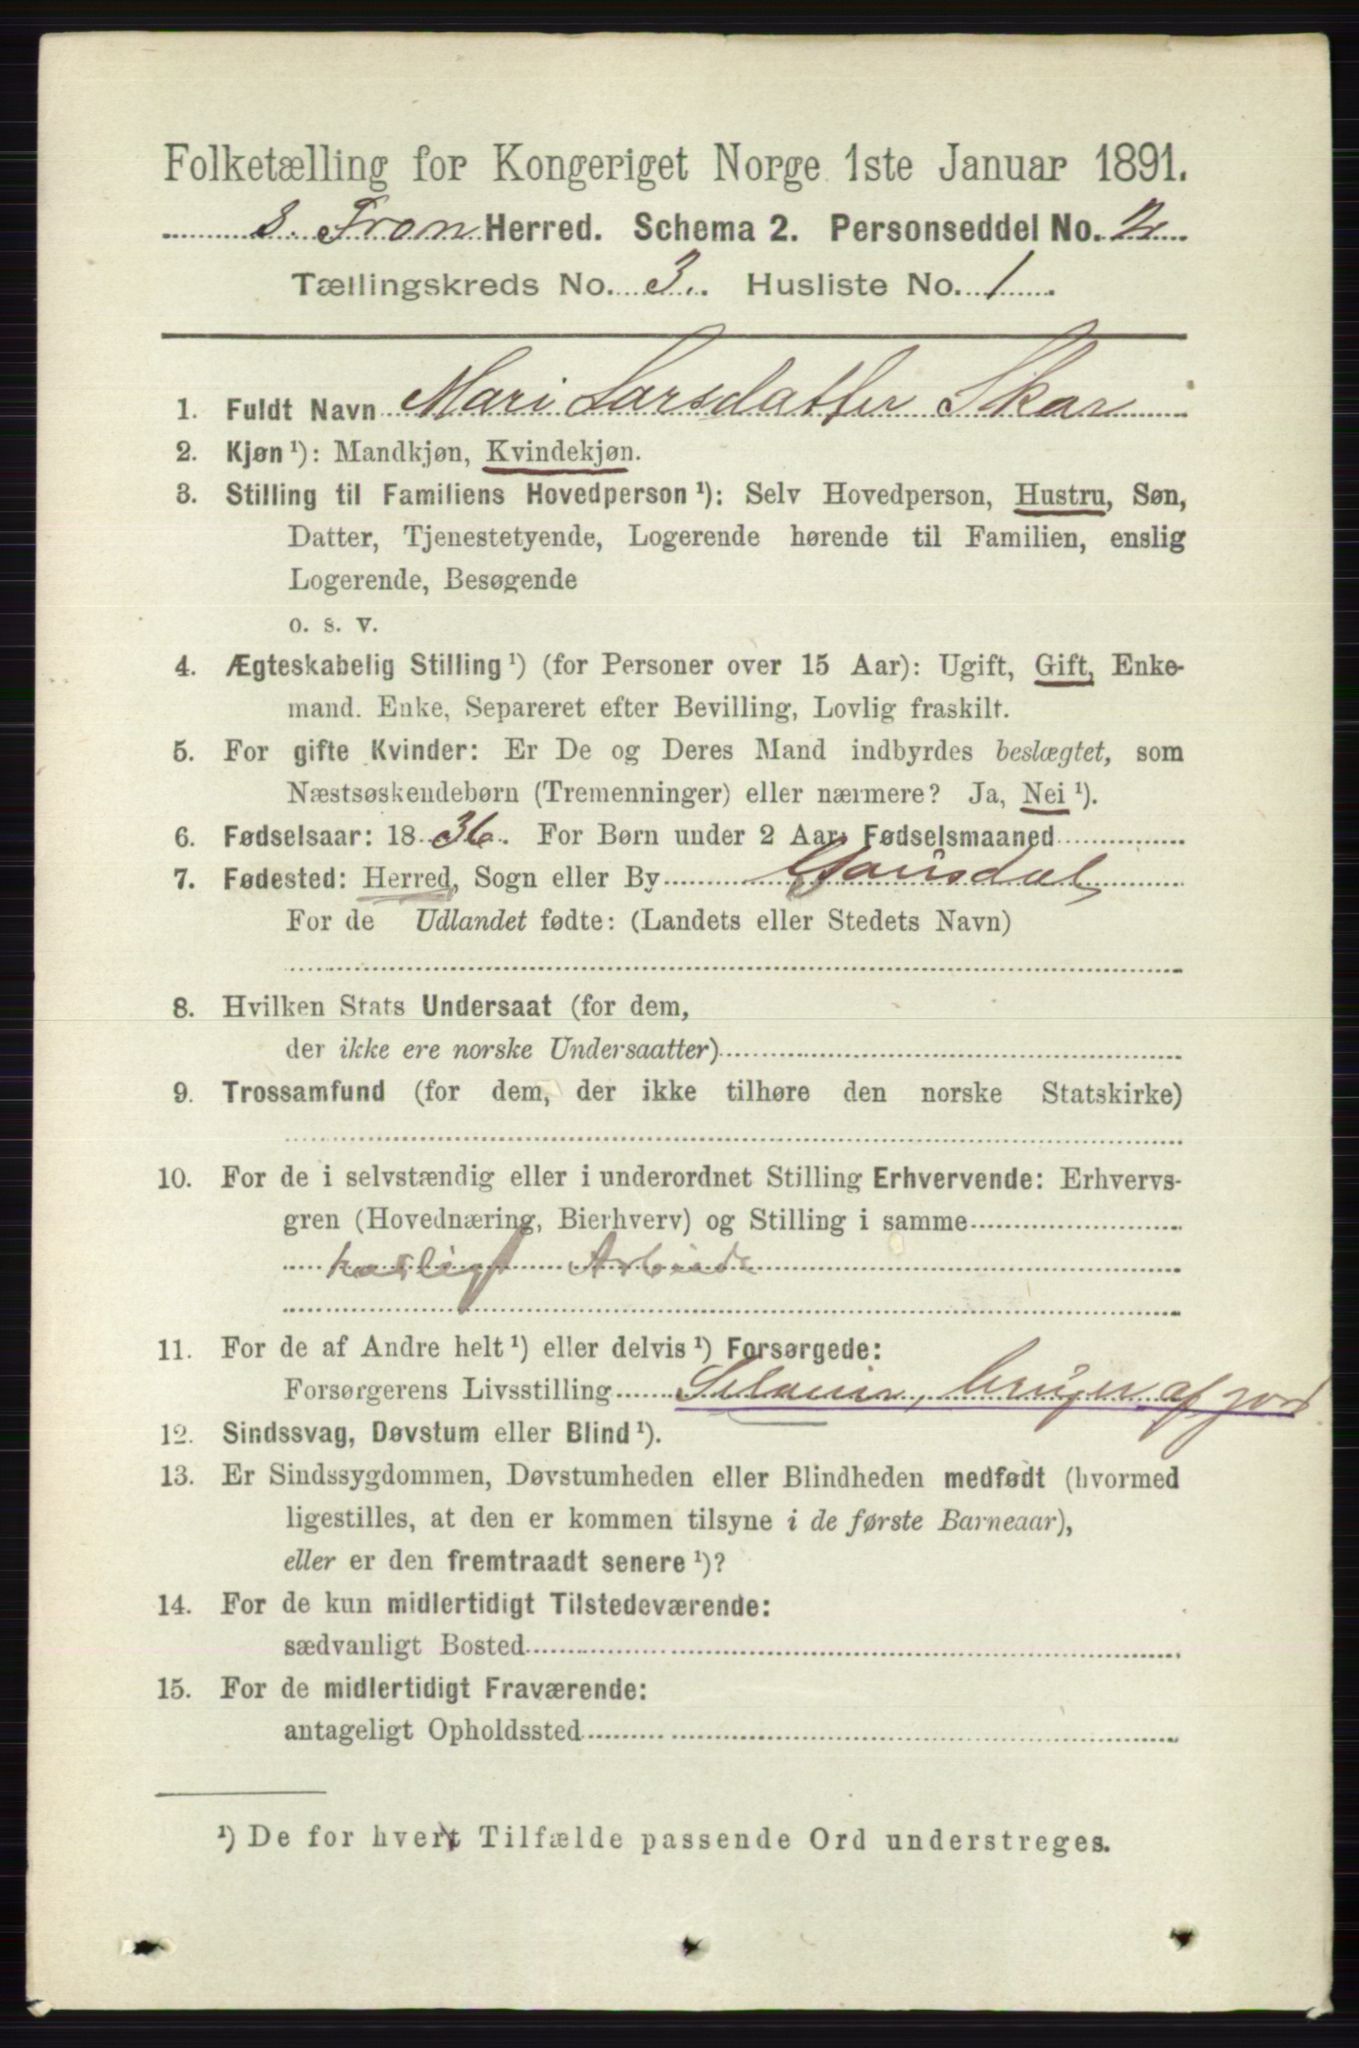 Folketælling for Kongeriget Norge 1ste Januar 1891.
S. Fron Herred. Schema 2. Personseddel No. 2
Tællingskreds No. 3. Husliste No. 1
1. Fuldt Navn Mari Larsdatter Skar
2. Kjøn¹): Mandkjøn, Kvindekjøn.
3. Stilling til Familiens Hovedperson¹): Selv Hovedperson, Hustru, Søn,
Datter, Tjenestetyende, Logerende hørende til Familien, enslig
Logerende, Besøgende
o. s. v.
4. Ægteskabelig Stilling¹) (for Personer over 15 Aar): Ugift, Gift, Enke-
mand. Enke, Separeret efter Bevilling, Lovlig fraskilt.
5. For gifte Kvinder: Er De og Deres Mand indbyrdes beslægtet, som
Næstsøskendebørn (Tremenninger) eller nærmere? Ja, Nei¹).
6. Fødselsaar: 1836. For Børn under 2 Aar, Fødselsmaaned
7. Fødested: Herred, Sogn eller By Gausdal
For de Udlandet fødte: (Landets eller Stedets Navn)
8. Hvilken Stats Undersaat (for dem,
der ikke ere norske Undersaatter)
9. Trossamfund (for dem, der ikke tilhøre den norske Statskirke)
10. For de i selvstændig eller i underordnet Stilling Erhvervende: Erhvervs-
gren (Hovednæring, Bierhverv) og Stilling i samme
husligt Arbeide
11. For de af Andre helt¹) eller delvis¹) Forsørgede:
Forsørgerens Livsstilling Selveier, bruger af jord
12. Sindssvag, Døvstum eller Blind¹).
13. Er Sindssygdommen, Døvstumheden eller Blindheden medfødt (hvormed
ligestilles, at den er kommen tilsyne i de første Barneaar),
eller er den fremtraadt senere¹)?
14. For de kun midlertidigt Tilstedeværende:
sædvanligt Bosted
15. For de midlertidigt Fraværende:
antageligt Opholdssted
¹) De for hvert Tilfælde passende Ord understreges.